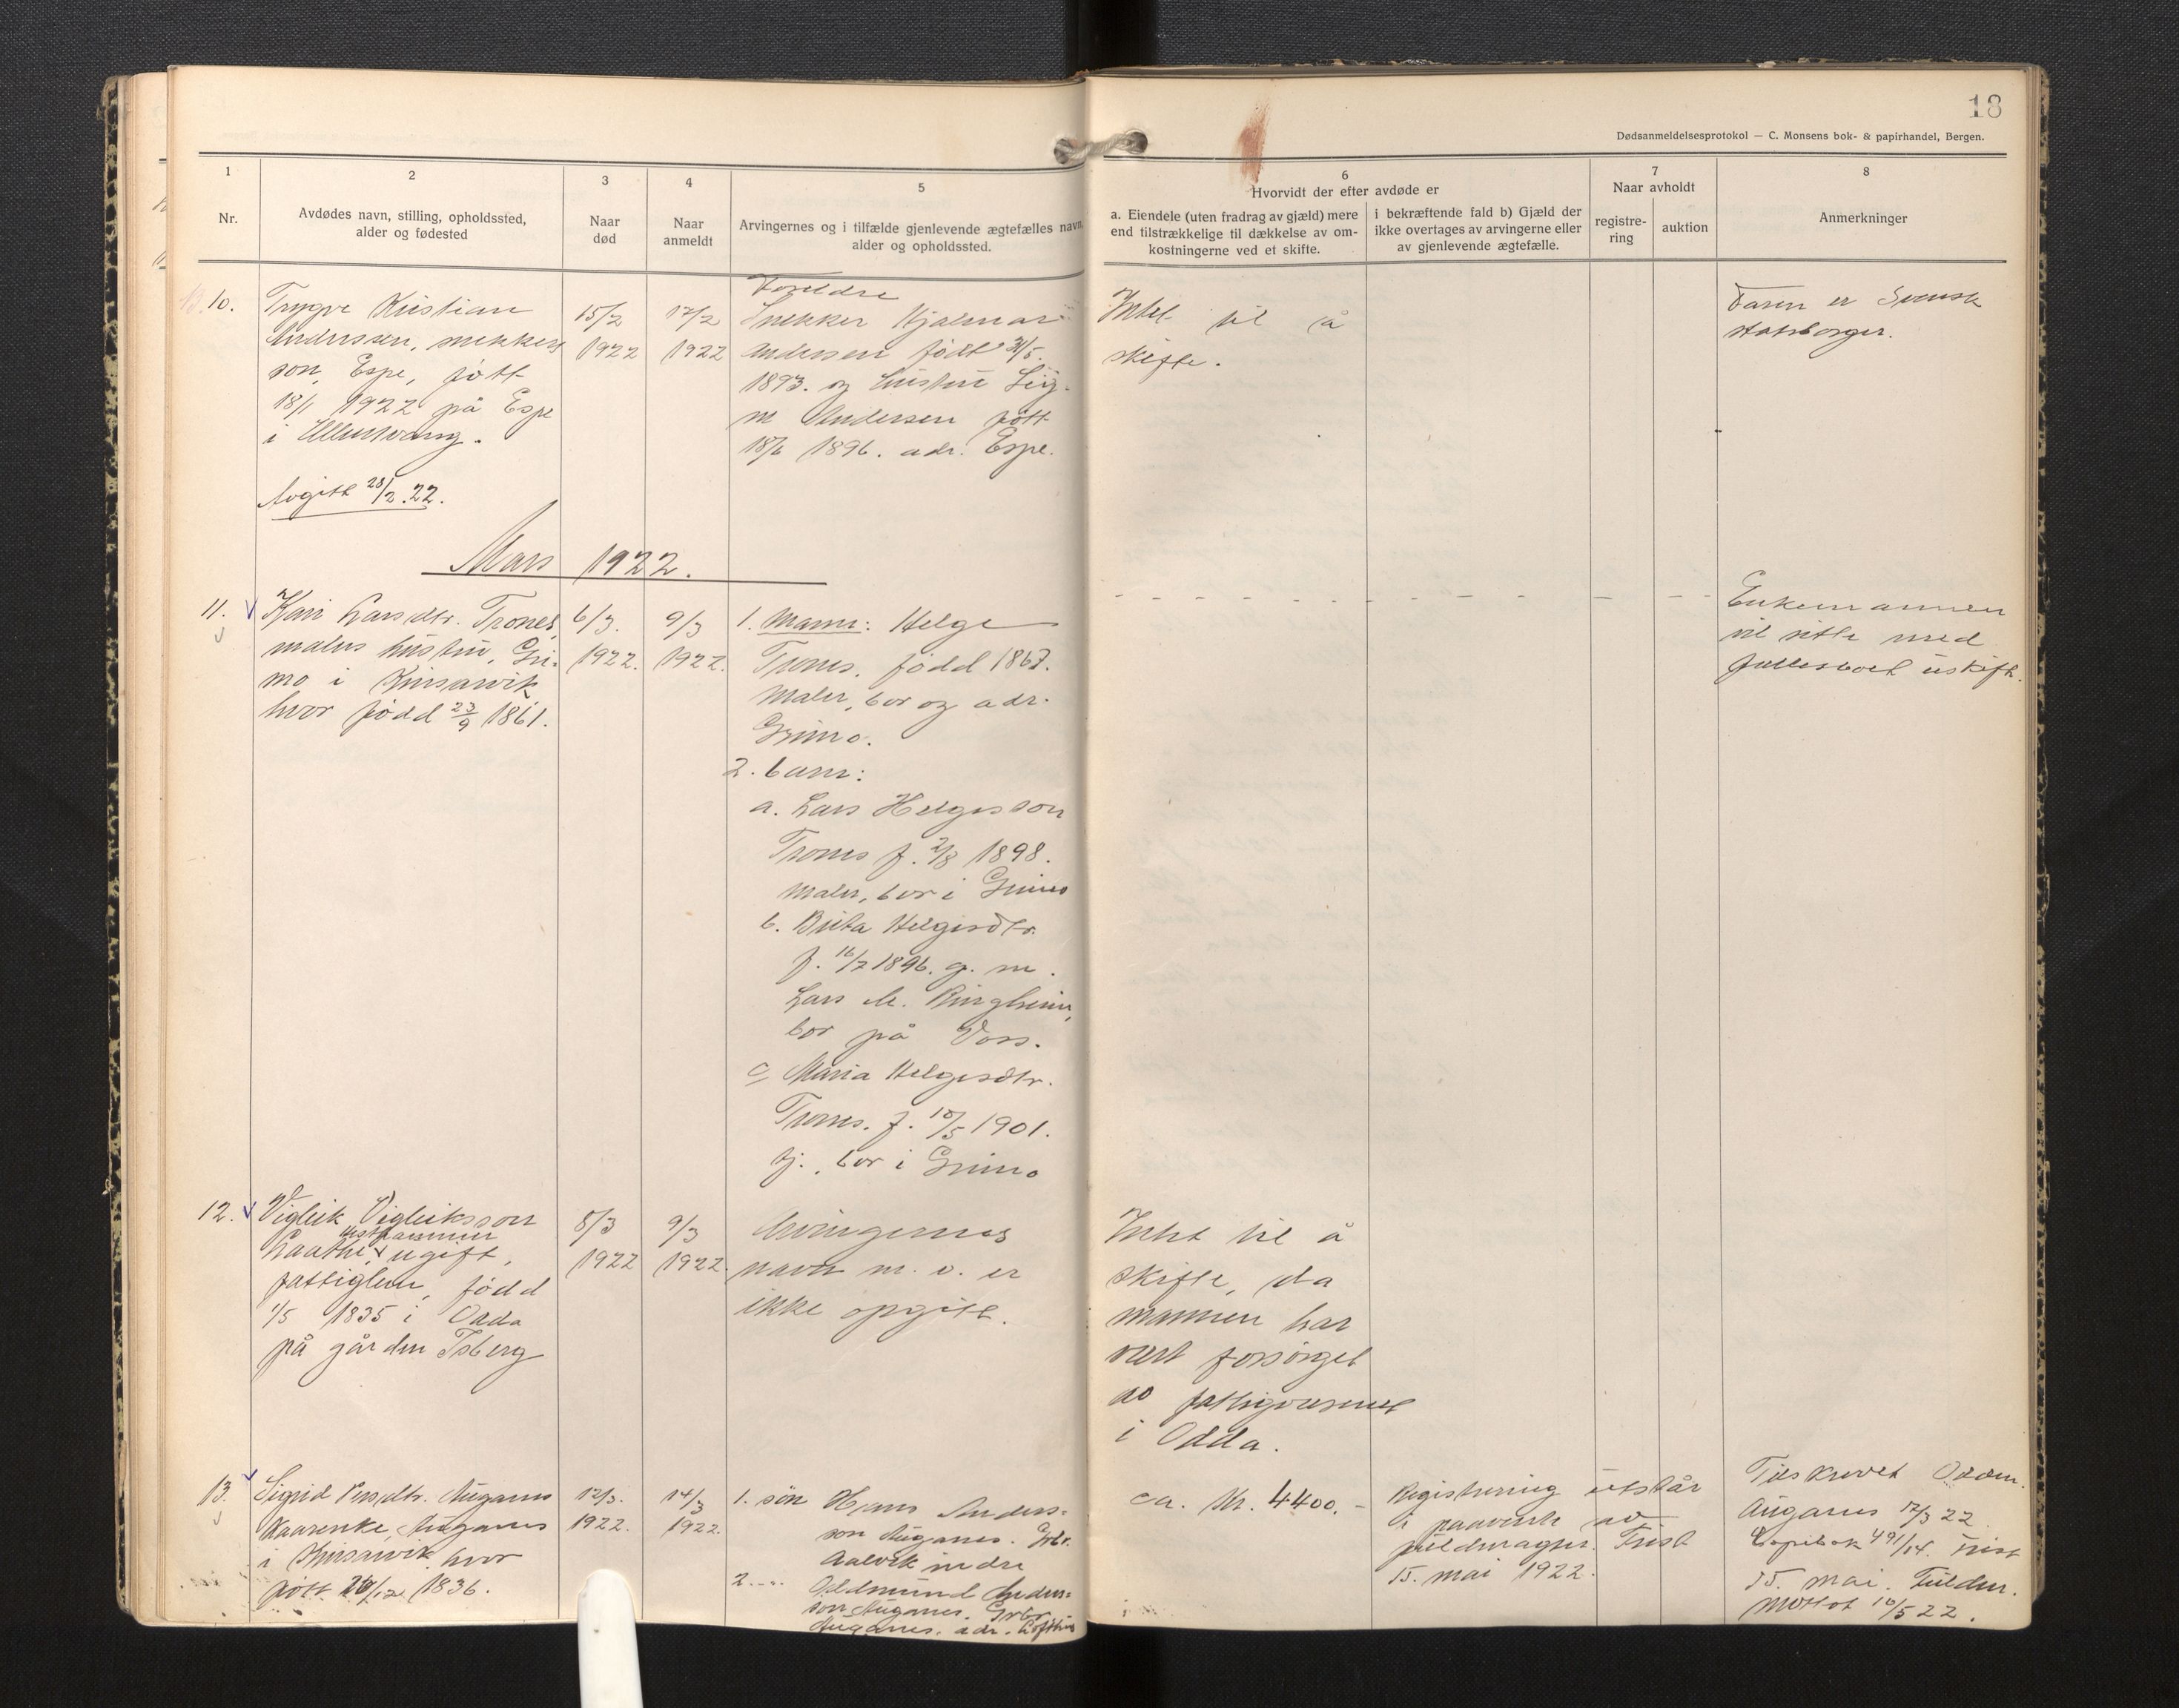 18
Dødsanmeldelsesprotokol — C. Monsens bok- & papirhandel, Bergen.
1
Nr.
2
Avdødes navn, stilling, opholdssted,
alder og fødested
3
Naar
død
4
Naar
anmeldt
5
Arvingernes og i tilfælde gjenlevende ægtefælles navn,
alder og opholdssted.
6
Hvorvidt der efter avdøde er
a. Eiendele (uten fradrag av gjæld) mere
end tilstrækkelige til dækkelse av om-
kostningerne ved et skifte.
i bekræftende fald b) Gjæld der
ikke overtages av arvingerne eller
av gjenlevende ægtefælle.
7
Naar avholdt
registre-
ring
auktion
8
Anmerkninger
10.
Trygve Kristian
Anderssen, snekker
son, Espe, fött
18/1 1922 på Espe
i Ullensvang.
Avgitt 28/2.22.
15/2
1922
17/2
1922
Foreldre
Snekker Hjalmar
Andersen födt 31/5
1893. og hustru Sig-
ne Andersen fött
18/6 1896. adr. Espe.
Intet til å
skifte.
Faren er Svensk
statsborger.
Mars 1922.
11.
Kari Larsdtr. Trones,
malers hustru, Gri-
mo i Kinsarvik
hvor född 23/9 1861.
6/3.
1922.
9/3
1922.
1. Mann: Helge
Trones. född 1867.
Maler, bor og adr.
Grimo.
2. barn:
a. Lars Helgesson
Trones f. 2/8 1898.
Maler, bor i Grimo
b. Brita Helgesdtr.
f. 16/7 1896. g. m.
Lars M. Ringheim,
bor på Voss.
c Maria Helgesdtr.
Trones. f. 10/5 1901.
tj., bor i Grimo
Enkemannen
vil sitte med
fellesboet uskift.
12.
Vigleik Vigleiksson
Laathe, ugift,
fattiglem, född
1/5 1835 i Odda
på gården Isberg
8/3
1922
9/3
1922.
Arvingernes
navn m. v. er
ikke opgitt.
Intet til å
skifte, da
mannen har
vært forsörget
av fattigvæsenet
i Odda.
13.
Sigrid Persdtr. Auganes
Kaarenke, Auganes
i Kinsarvik hvor
fött 20/12 1836.
12/3.
1922.
14/3
1922.
1. sön Hans Anders-
son Auganes. Grbr.
Aalvik indre
2. -"- Oddmund Anders-
son Auganes. Grbr.
Auganes. adr. Lofthus
ca. kr. 4400.-
Registrering utstår
i paavente av
fuldmagter. Frist
15. mai 1922.
Tilskrevet Oddm.
Auganes 17/3 22
Kopibok 491/14. Frist
15. mai. Fuldm.
Mottot 10/5 22.